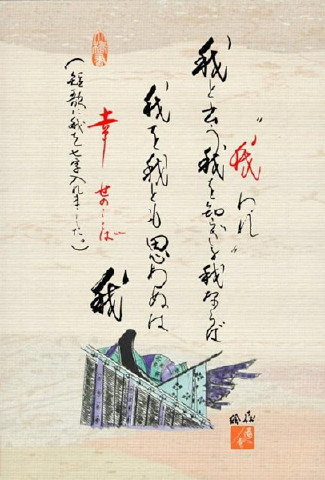 “我 われ”
我と云う我を知らぬ我ならば
我を我とも思わぬは
我
幸せのことば
(短歌に我を七字入れました。)